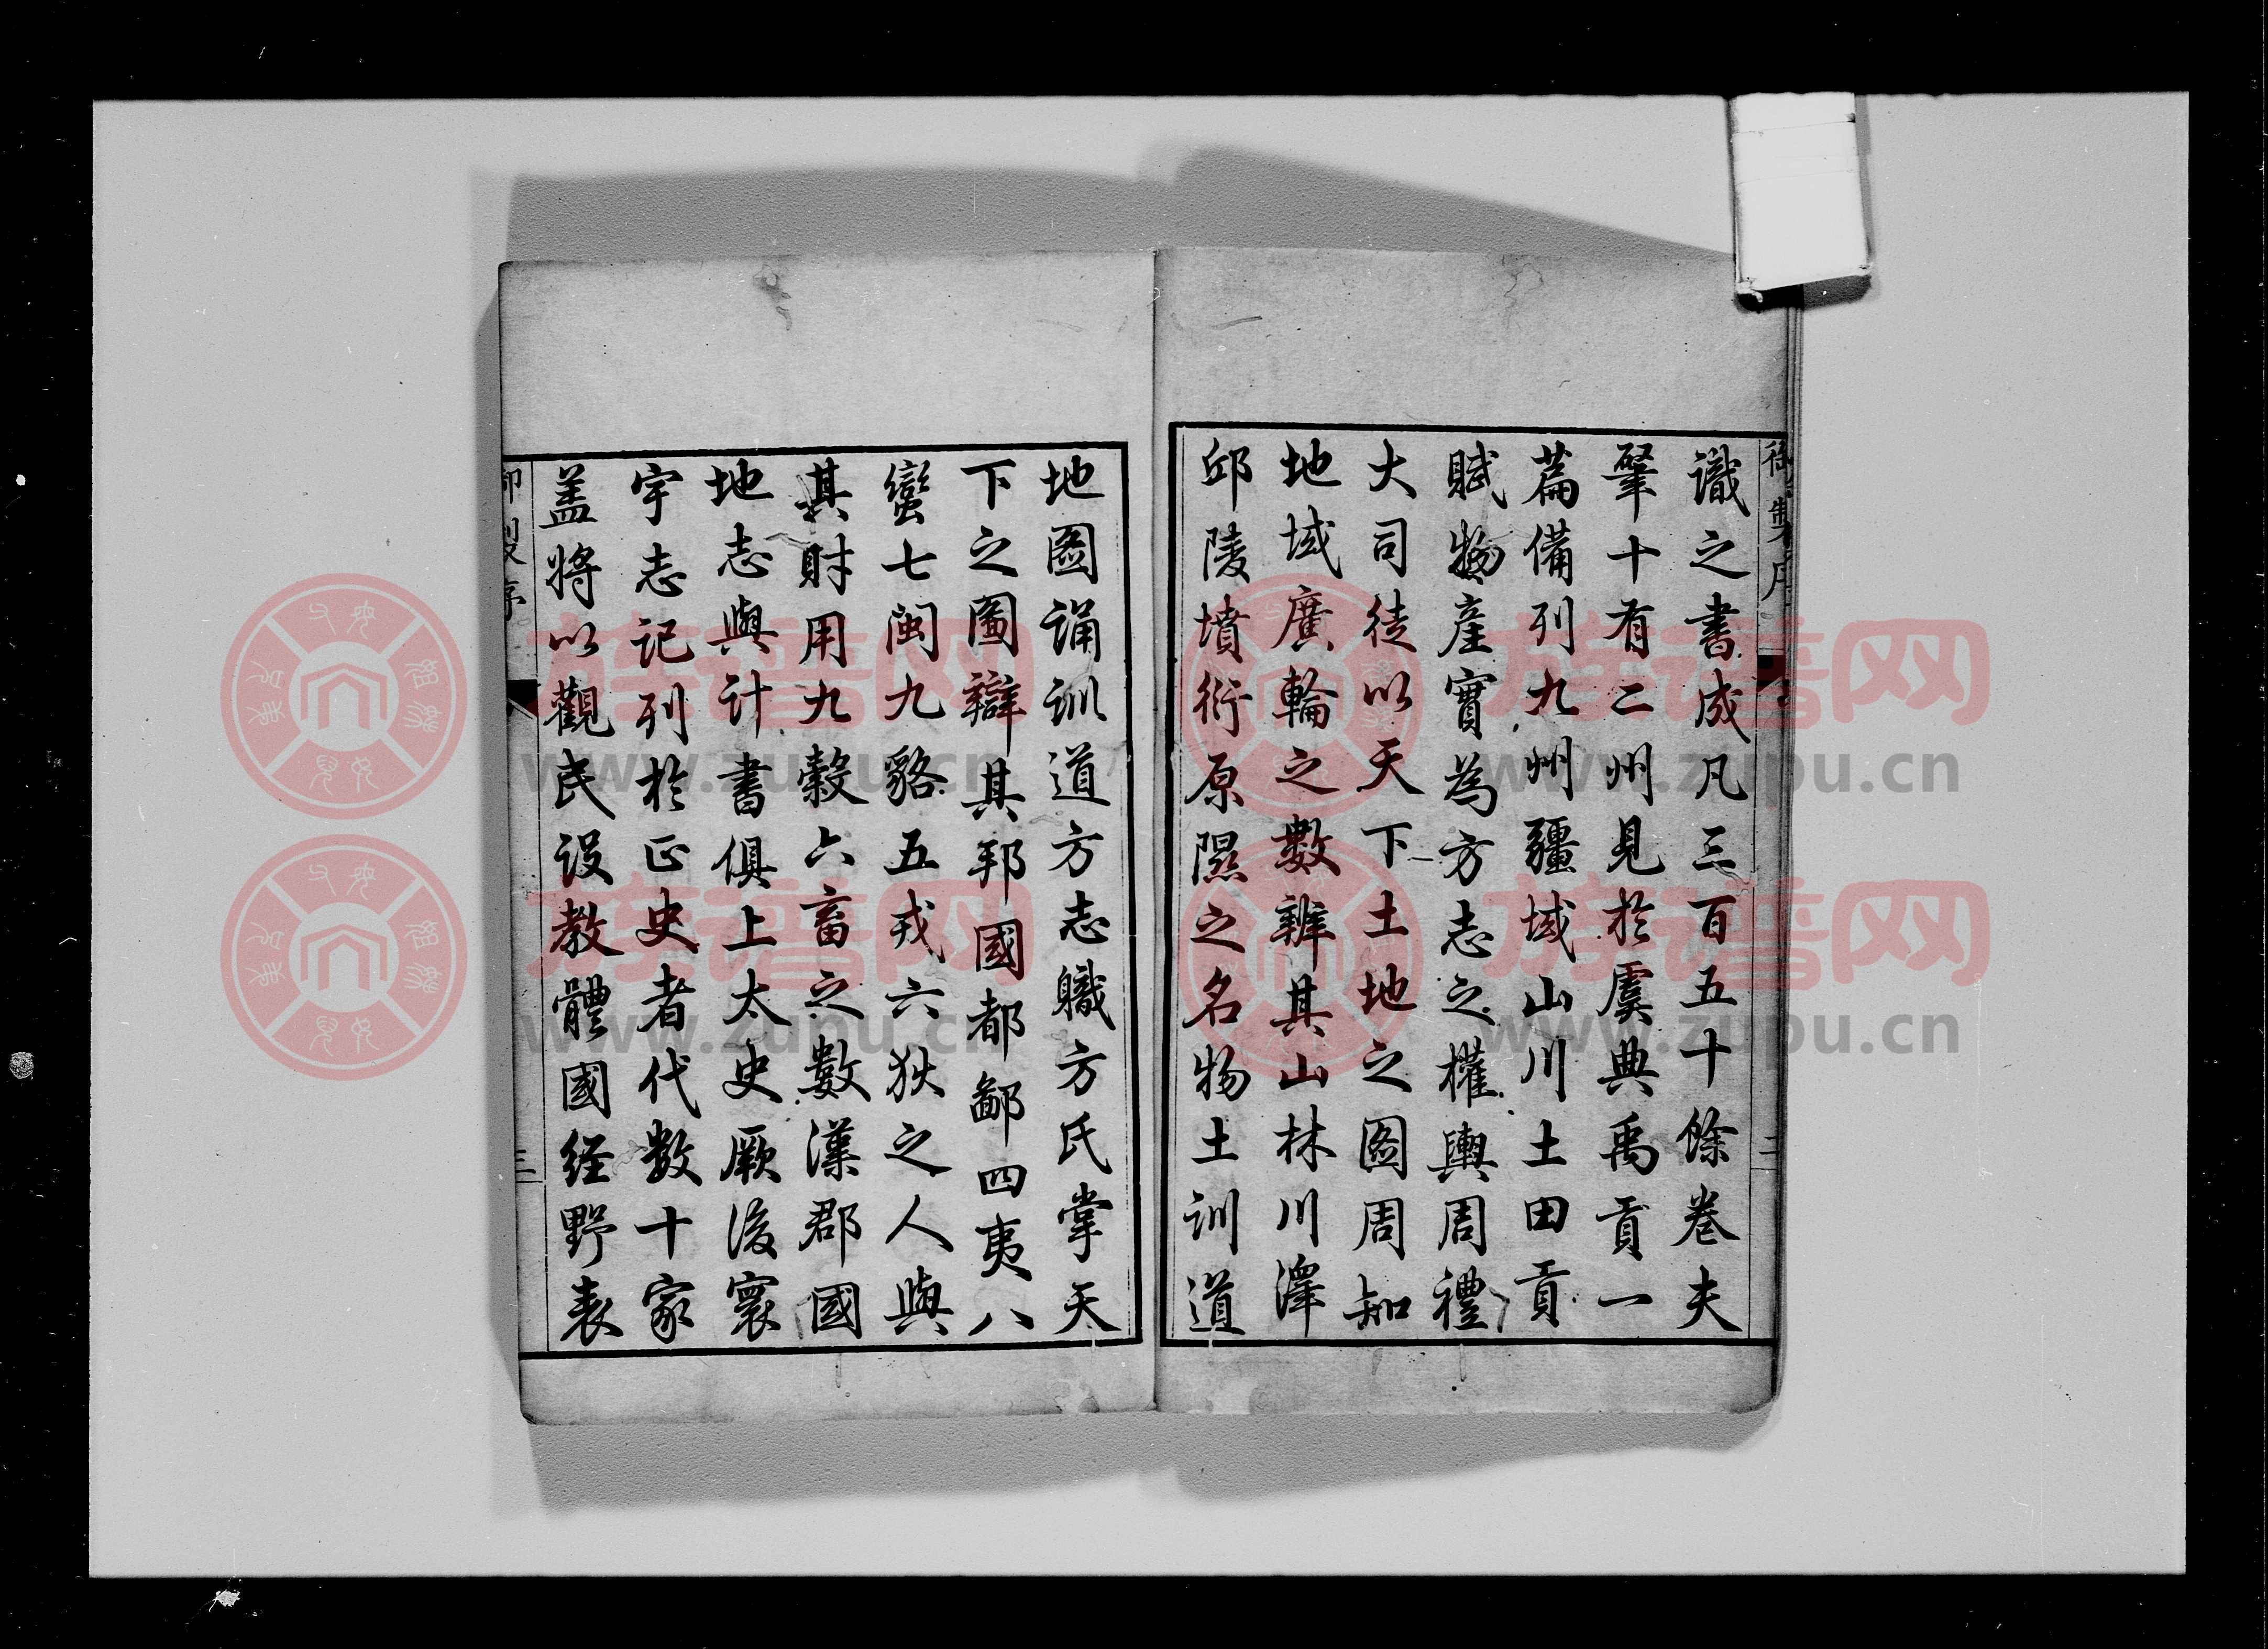 御製序
二
識之書成凡三百五十餘卷夫
肇十有二州見於虞典禹貢一
篇備列九州疆域山川土田貢
賦物產實為方志之權輿周禮
大司徒以天下土地之圖周知
地域廣輪之數辨其山林川澤
邱陵墳衍原隰之名物土訓道
地圖誦訓道方志職方氏掌天
下之圖辯其邦國都鄙四夷八
蠻七閩九貉五戎六狄之人與
其財用九穀六畜之數漢郡國
地志與計書俱上太史厥後寰
宇志記列於正史者代數十家
盖將以觀民設教體國經野表
御製序
三
族譜网
www.zupu.cn
族譜网
www.zupu.cn
族譜网
www.zupu.cn
族譜网
www.zupu.cn